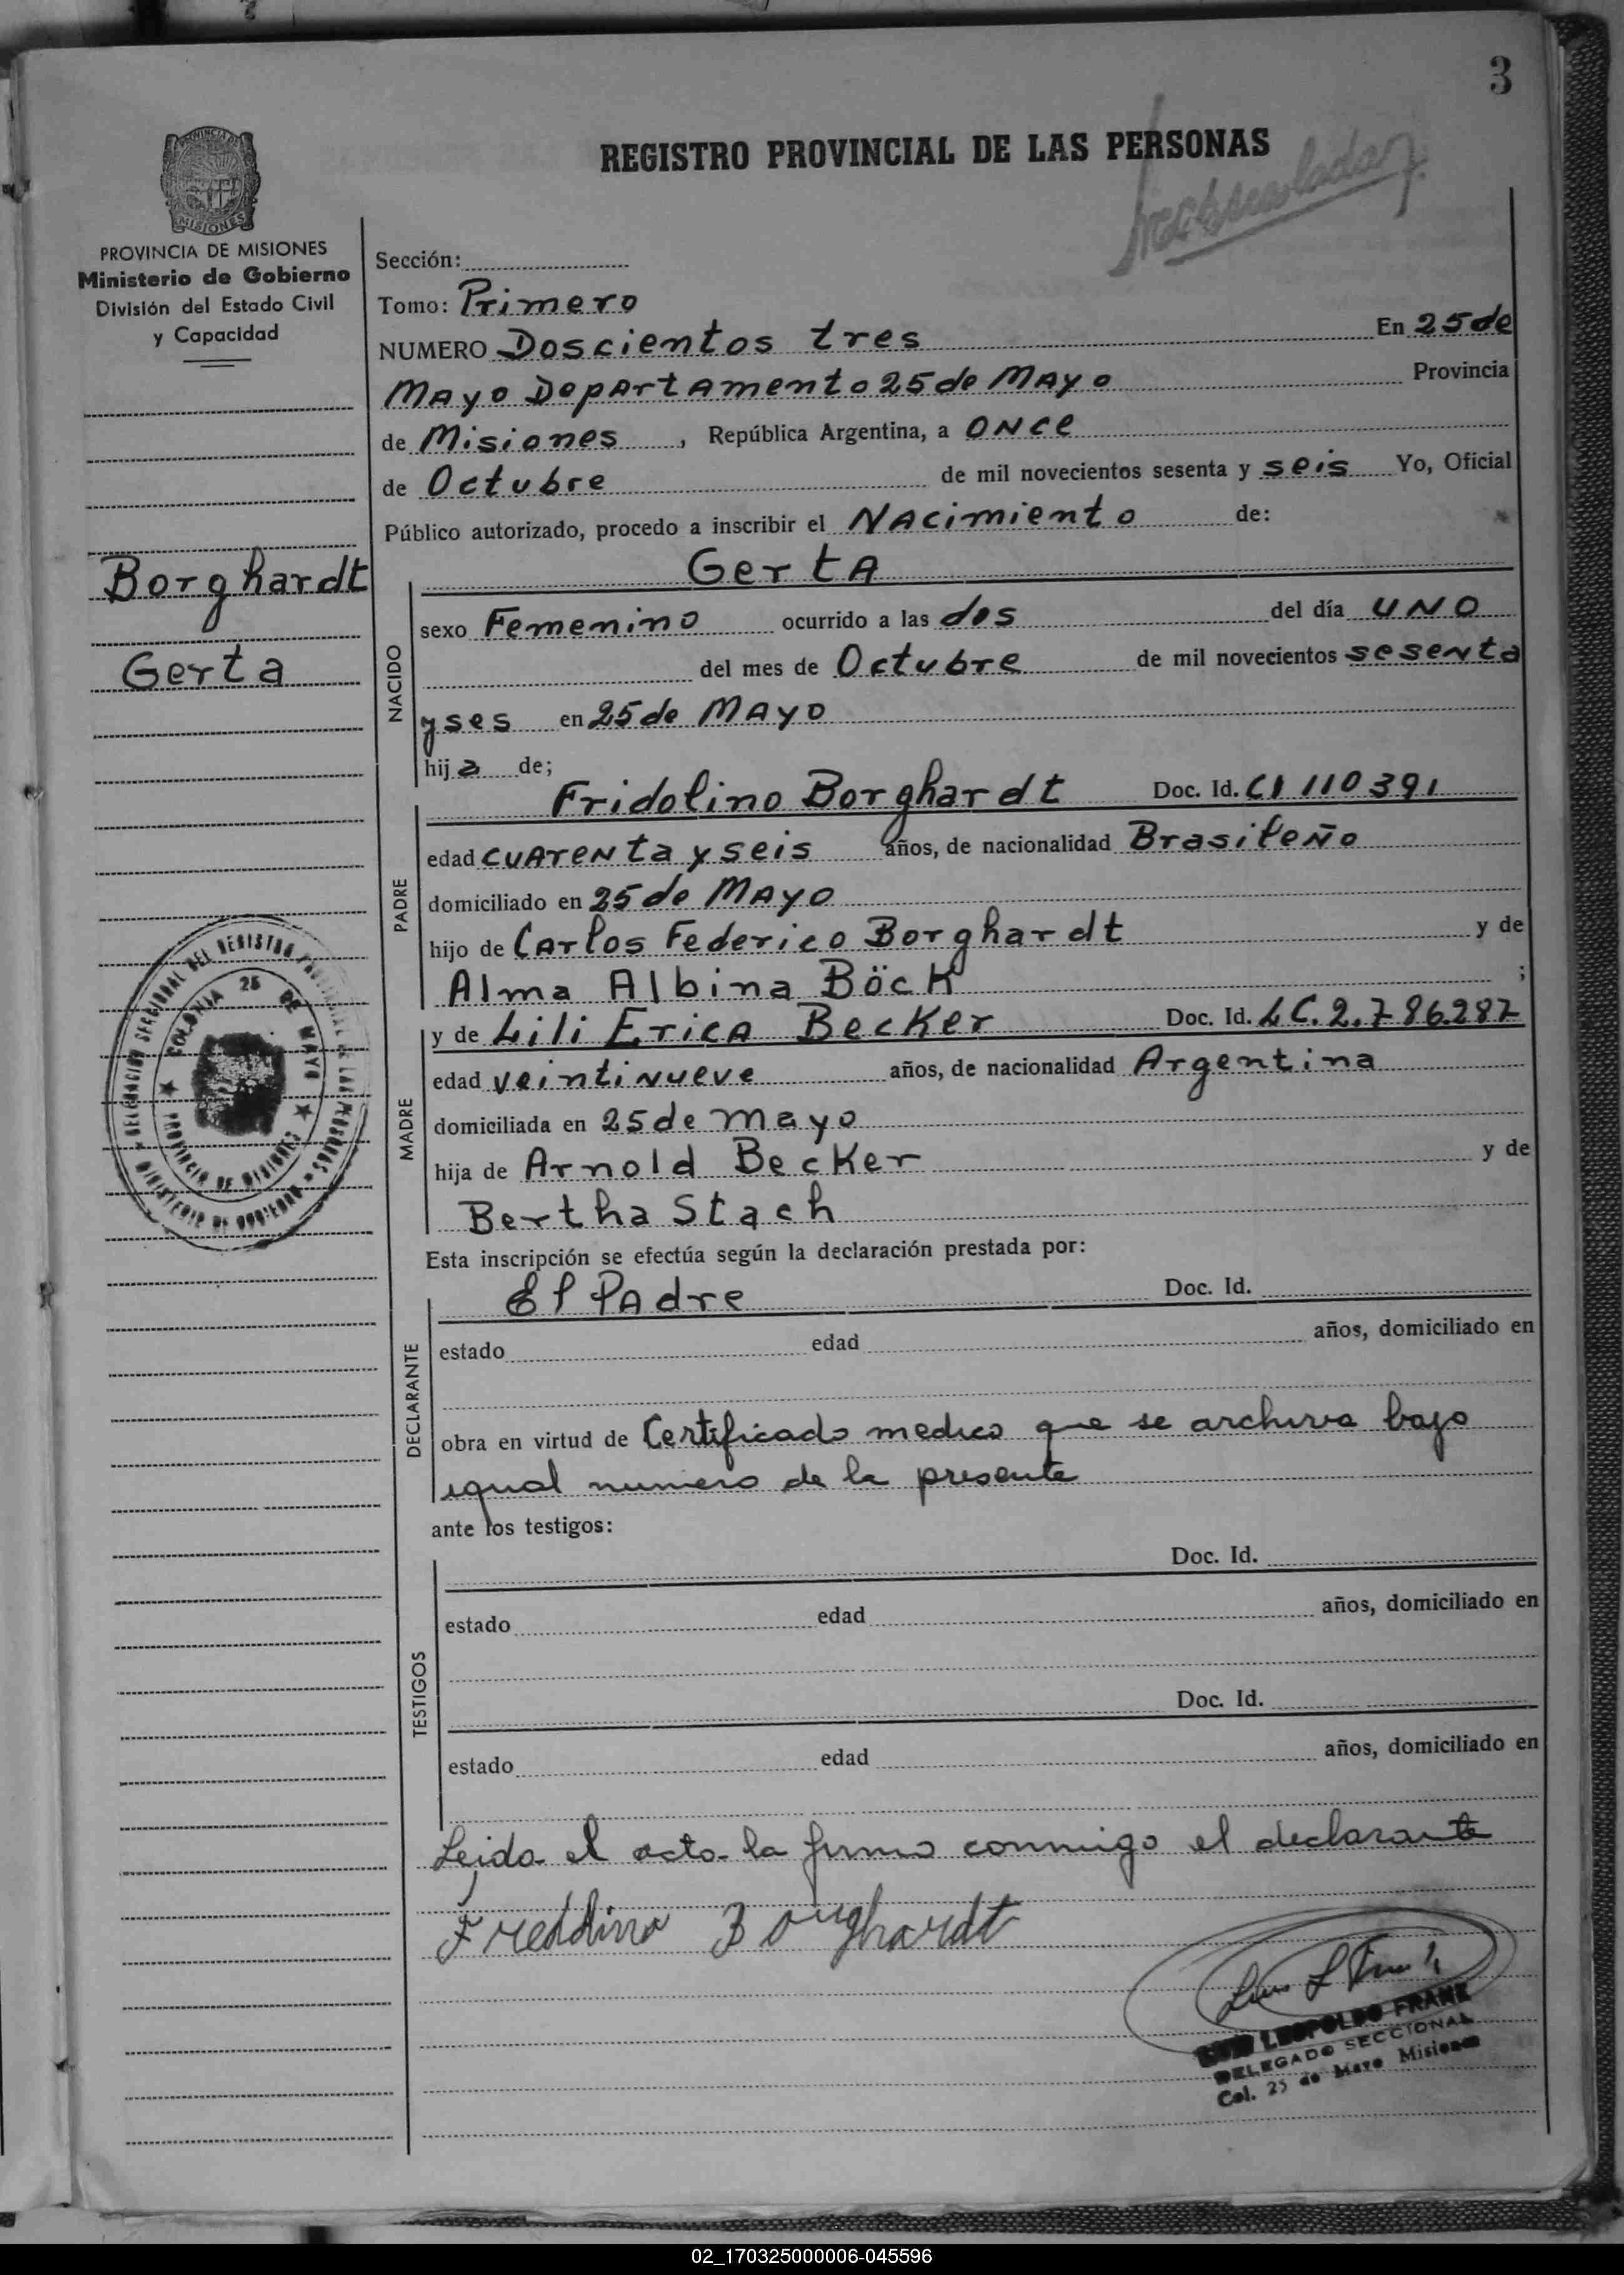 3
REGISTRO PROVINCIAL DE LAS PERSONAS
PROVINCIA DE MISIONES
Ministerio de Gobierno
División del Estado Civil
y Capacidad
Borghardt
Gerta
DELEGACION SECCIONAL DEL REGISTRO PROVINCIAL DE LAS PERSONAS
MINISTERIO DE GOBIERNO
COLONIA 25 DE MAYO
PROVINCIA DE MISIONES
Sección:
Tomo: Primero
NUMERO Doscientos tres En 25 de
Mayo Departamento 25 de Mayo Provincia
de Misiones, República Argentina, a ONce
de Octubre de mil novecientos sesenta y seis Yo, Oficial
Público autorizado, procedo a inscribir el Nacimiento de:
Gerta
NACIDO
sexo Femenino ocurrido a las dos del día UNO
del mes de Octubre de mil novecientos sesenta
y ses en 25 de Mayo
hija de;
Fridolino Borghardt Doc. Id. CI 110391
PADRE
edad cuarenta y seis años, de nacionalidad Brasileño
domiciliado en 25 de Mayo
hijo de Carlos Federico Borghardt y de
Alma Albina Böck ;
y de Lili Erica Becker Doc. Id. LC. 2.786.287
MADRE
edad veintinueve años, de nacionalidad Argentina
domiciliada en 25 de mayo
hija de Arnold Becker y de
Bertha Stach
Esta inscripción se efectúa según la declaración prestada por:
El Padre Doc. Id.
DECLARANTE
estado edad años, domiciliado en
obra en virtud de Certificado medico que se archiva bajo
igual numero de la presente
ante los testigos:
Doc. Id.
TESTIGOS
estado edad años, domiciliado en
Doc. Id.
estado edad años, domiciliado en
Leida el acta la firma conmigo el declarante
Freddino Borghardt
LUIS LEOPOLDO FRANK
DELEGADO SECCIONAL
Col. 25 de Mayo Misiones
02_170325000006-045596